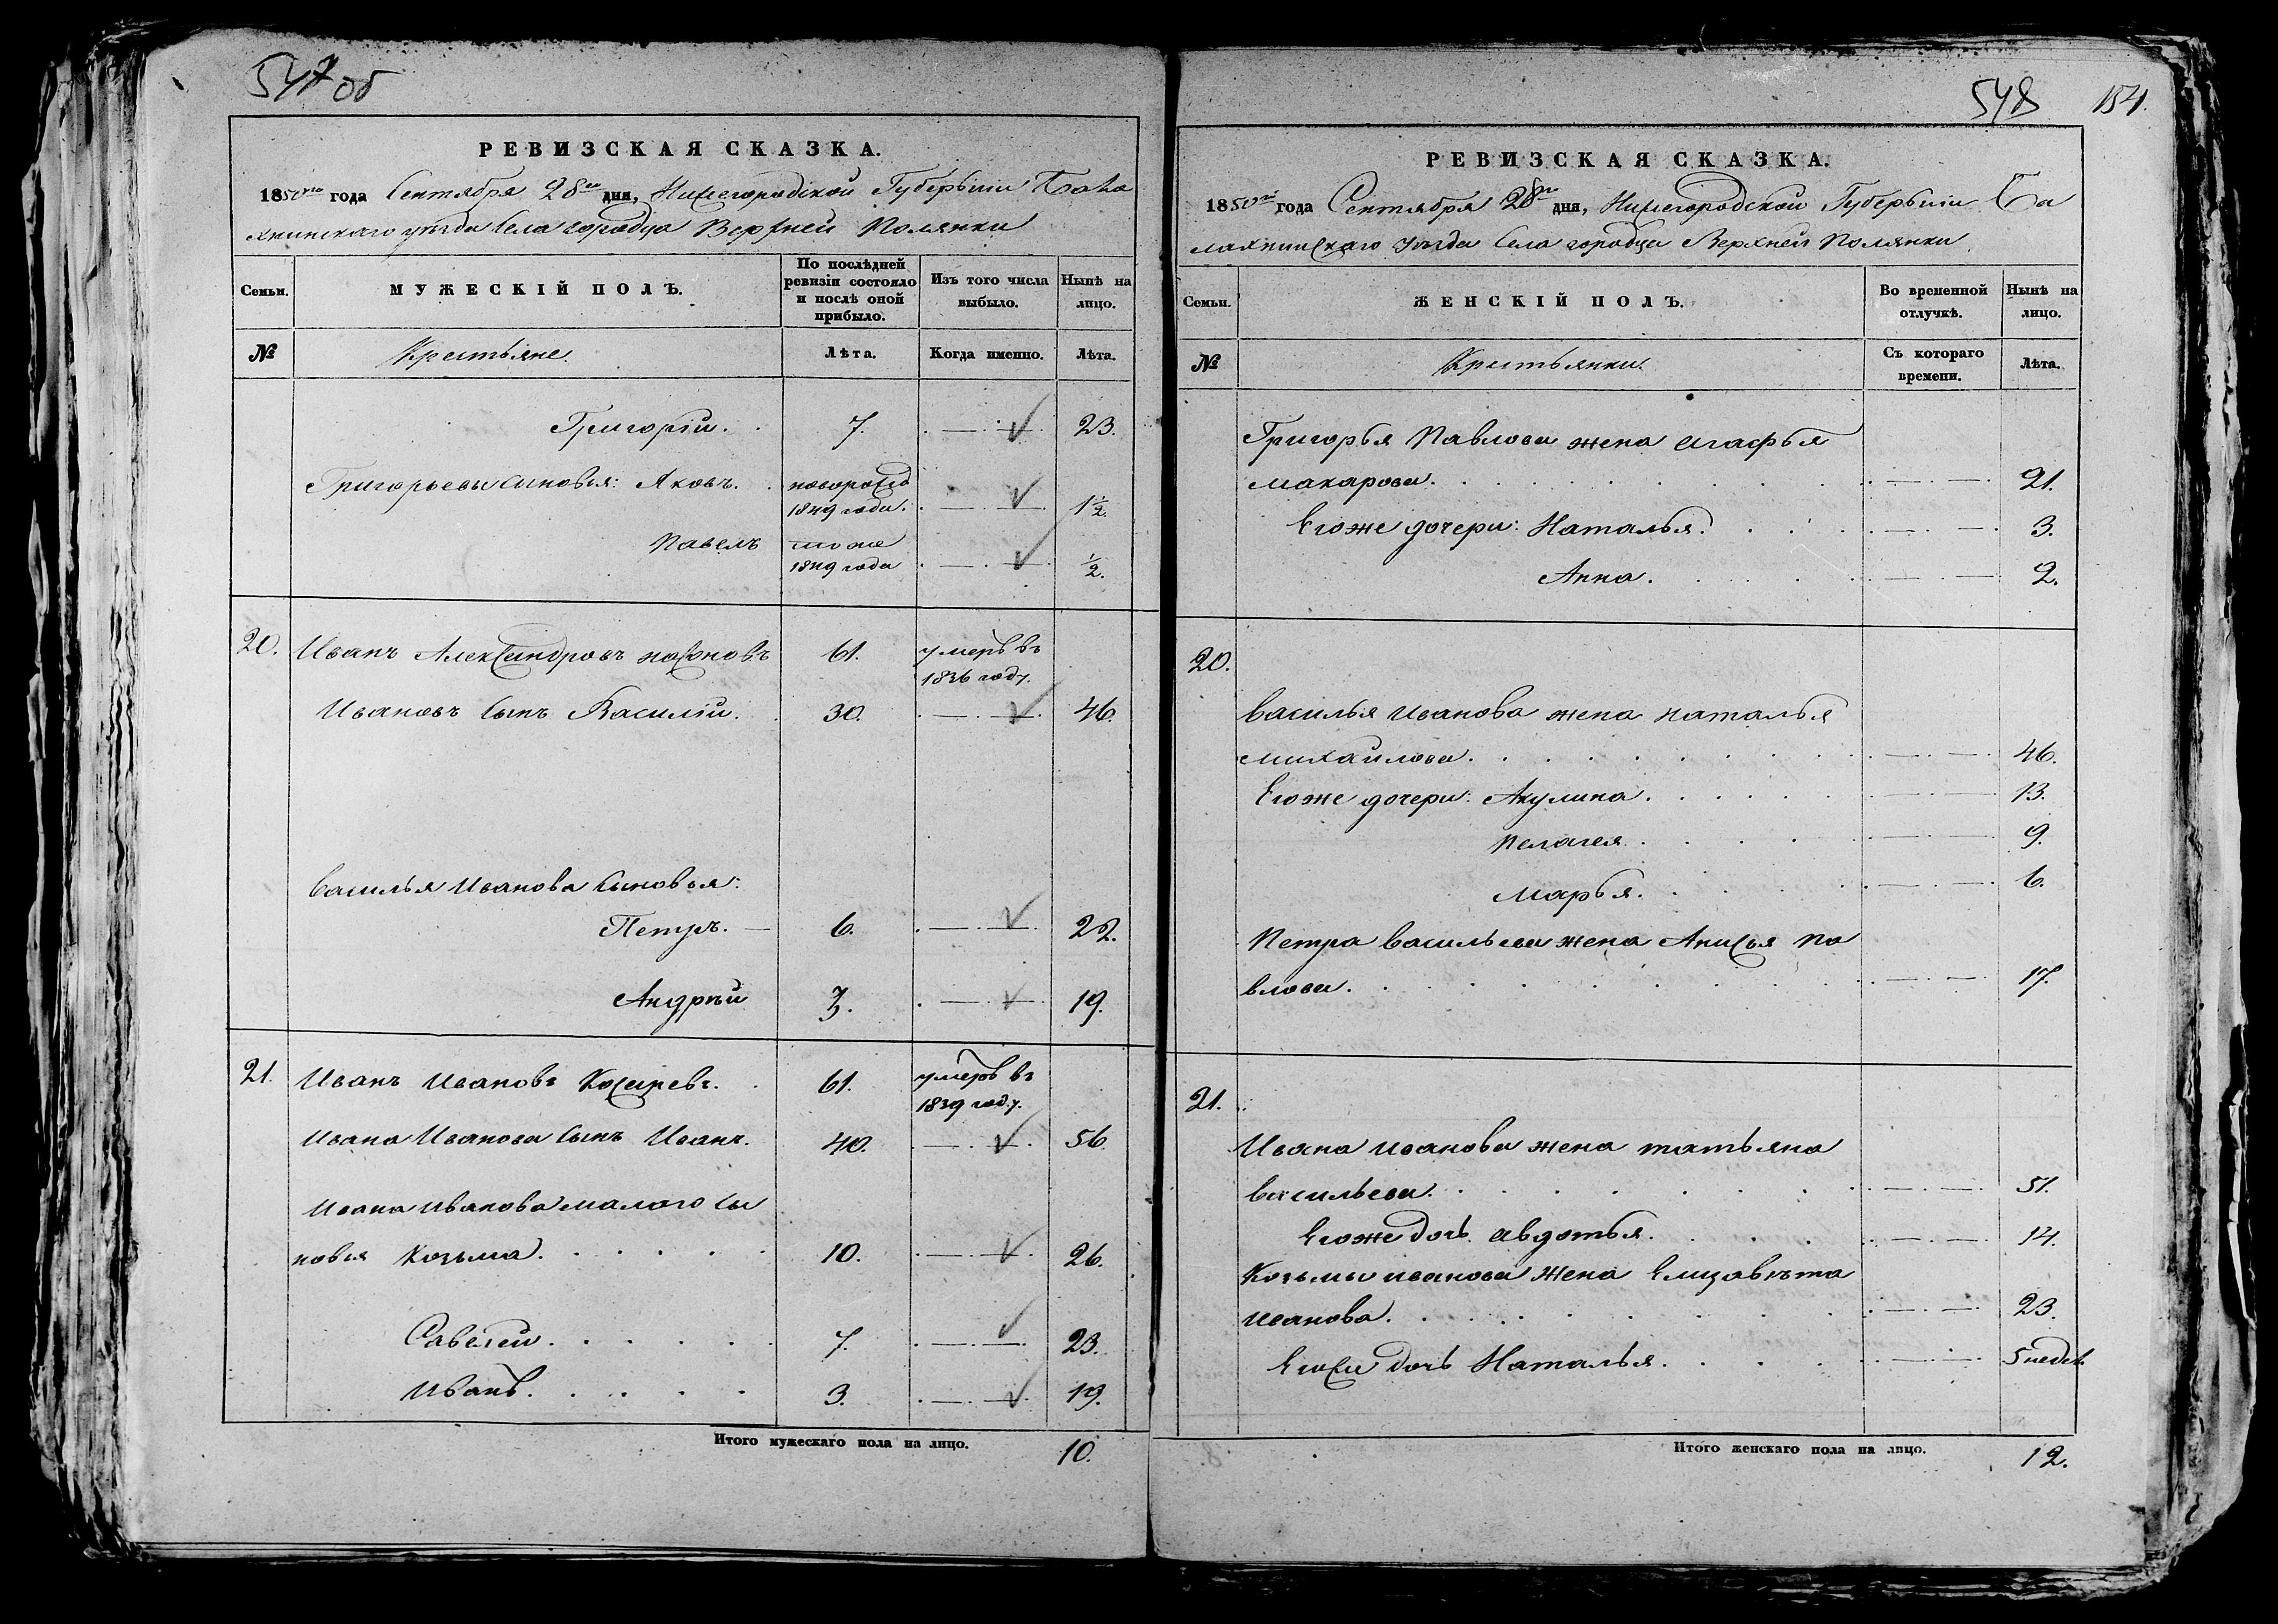 547 об
РЕВИЗСКАЯ СКАЗКА.
1850го года Сентября 28го дня, Нижегородской Губернiи Бала
хнинскаго уѣзда Села городца Верхней Полянки
Семьи.
МУЖЕСКІЙ ПОЛЪ.
По послѣдней
ревизіи состояло
и послѣ оной
прибыло.
Изъ того числа
выбыло.
Нынѣ на
лицо.
№ Крестьяне. Лѣта. Когда именно. Лѣта.
Григорій. 7. 23.
Григорьевы сыновья: Яковъ. новорожд
1849 года. 1½.
Павелъ тоже
1849 года ½.
20. Иванъ Александровъ 61. умеръ въ
1836 году.
Ивановъ сынъ Василій. 30. 46.
Василья Иванова сыновья:
Петръ. 6. 22.
Андрѣй 3. 19.
21. Иванъ Ивановъ 61. умеръ въ
1839 году.
Ивана Иванова сынъ Иванъ. 40. 56.
Ивана Иванова малого сы
новья Козьма. 10. 26.
Савелей. 7. 23.
Иванъ. 3. 19.
Итого мужескаго пола на лицо. 10.
548 154.
РЕВИЗСКАЯ СКАЗКА.
1850го года Сентября 28го дня, Нижегородской Губернiи Ба
лахнинскаго уѣзда Села городца Верхней Полянки
Семьи.
ЖЕНСКІЙ ПОЛЪ.
Во временной
отлучкѣ.
Нынѣ на
лицо.
№ Крестьянки. Съ котораго
времени. Лѣта.
Григорья Павлова жена Агафья
Макарова. 21.
Егоже дочери: Наталья. 3.
Анна. 2.
20.
Василья Иванова жена Наталья
Михайлова. 46.
Егоже дочери: Акулина. 13.
Пелагея. 9.
Марья. 6.
Петра Васильева жена Анисья Па
влова. 17.
21.
Ивана Иванова жена Татьяна
Васильева. 51.
Егоже дочь Авдотья. 14.
Козьмы Иванова жена Елизавѣта
Иванова. 23.
дочь Наталья. 5 недел
Итого женскаго пола на лицо. 12.